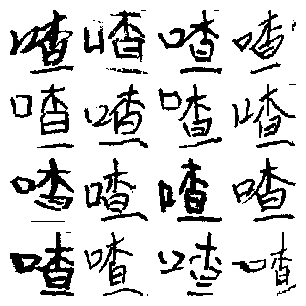 喳喳喳喳
喳喳喳喳
喳喳喳喳
喳喳喳喳